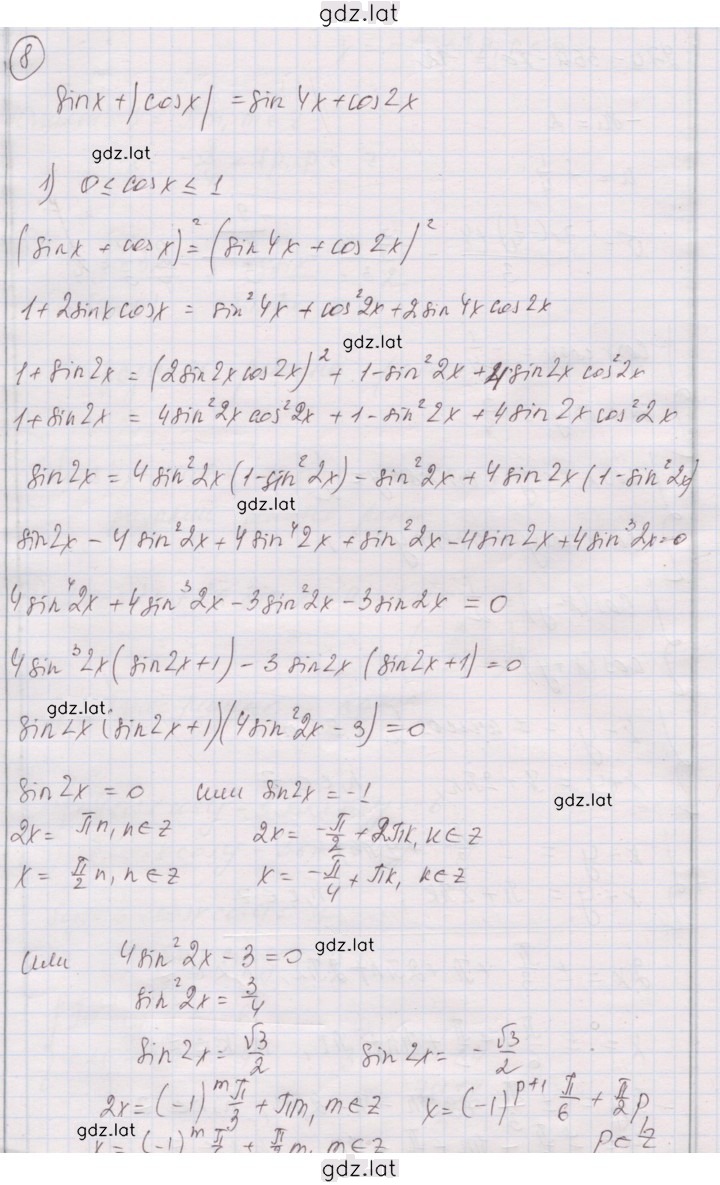 gdz.lat
8
sinx + |cosx| = sin4x + cos2x
gdz.lat
1) 0 ≤ cosx ≤ 1
(sinx + cosx)² = (sin4x + cos2x)²
1 + 2sinxcosx = sin²4x + cos²2x + 2sin4xcos2x
gdz.lat
1 + sin2x = (2sin2xcos2x)² + 1 - sin²2x + 4sin2xcos²2x
1 + sin2x = 4sin²2xcos²2x + 1 - sin²2x + 4sin2xcos²2x
sin2x = 4sin²2x(1-sin²2x) - sin²2x + 4sin2x(1-sin²2x)
gdz.lat
sin2x - 4sin²2x + 4sin⁴2x + sin²2x - 4sin2x + 4sin³2x = 0
4sin⁴2x + 4sin³2x - 3sin²2x - 3sin2x = 0
4sin³2x(sin2x+1) - 3sin2x(sin2x+1) = 0
gdz.lat
sin2x(sin2x+1)(4sin²2x - 3) = 0
sin2x = 0 или sin2x = -1
gdz.lat
2x = πn, n∈Z 2x = -π/2 + 2πk, k∈Z
x = π/2 n, n∈Z x = -π/4 + πk, k∈Z
или 4sin²2x - 3 = 0
gdz.lat
sin²2x = 3/4
sin2x = √3/2 sin2x = -√3/2
2x = (-1)^m π/3 + πm, m∈Z x = (-1)^(p+1) π/6 + π/2 p,
gdz.lat
p∈Z
gdz.lat